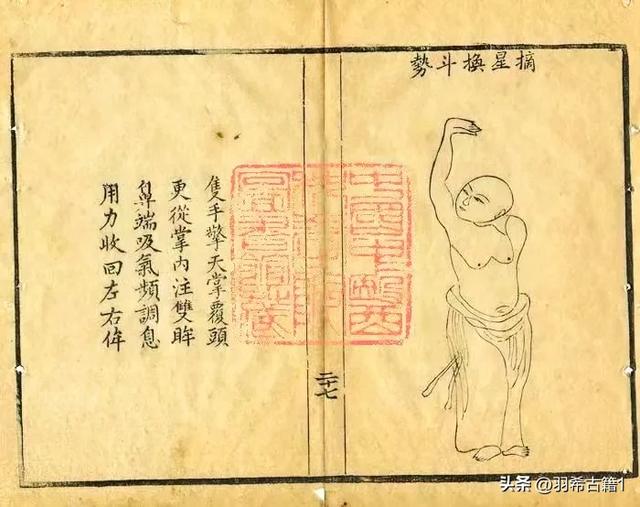 摘星換斗勢
隻手擎天掌覆頭
更從掌內注雙眸
鼻端吸氣頻調息
用力收回左右侔
二十七
头条 @羽希古籍1